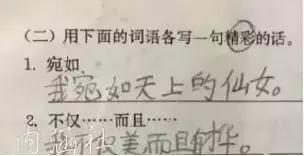 (二)用下面的词语各写一句精彩的话。
1. 宛如
我宛如天上的仙女。
2. 不仅……而且……
美而且有才华。